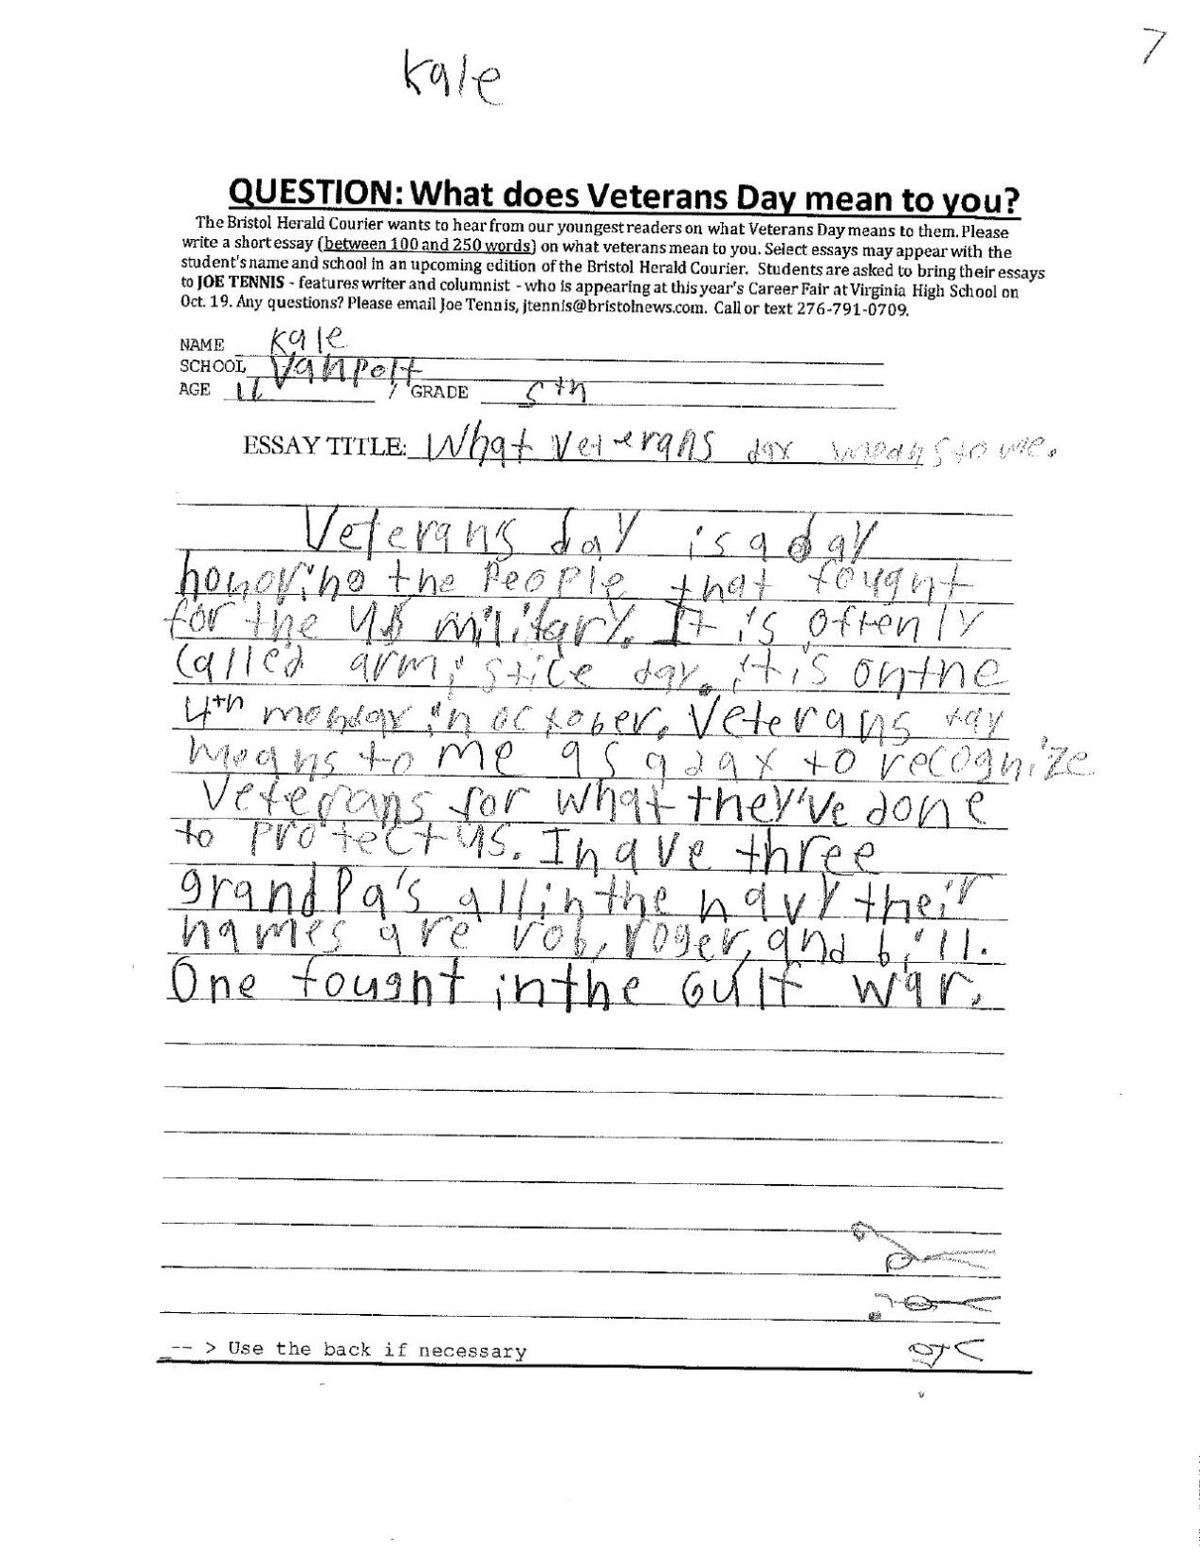 Kale
7
QUESTION: What does Veterans Day mean to you?
The Bristol Herald Courier wants to hear from our youngest readers on what Veterans Day means to them. Please
write a short essay (between 100 and 250 words) on what veterans mean to you. Select essays may appear with the
student's name and school in an upcoming edition of the Bristol Herald Courier. Students are asked to bring their essays
to JOE TENNIS - features writer and columnist - who is appearing at this year's Career Fair at Virginia High School on
Oct. 19. Any questions? Please email Joe Tennis, jtennis@bristolnews.com. Call or text 276-791-0709.
NAME Kale
SCHOOL Vanpelt
AGE 11 / GRADE 5th
ESSAY TITLE: What veterans day means to me.
Veterans day is a day
honoring the People that fought
for the US military. It is oftenly
called armistice day. it is on the
4th monday in october. Veterans day
means to me as a day to recognize
Veterans for what they've done
to Protect us. I have three
grandPa's all in the navy their
names are rob, roger, and bill.
One fought in the Gulf war.
-- > Use the back if necessary